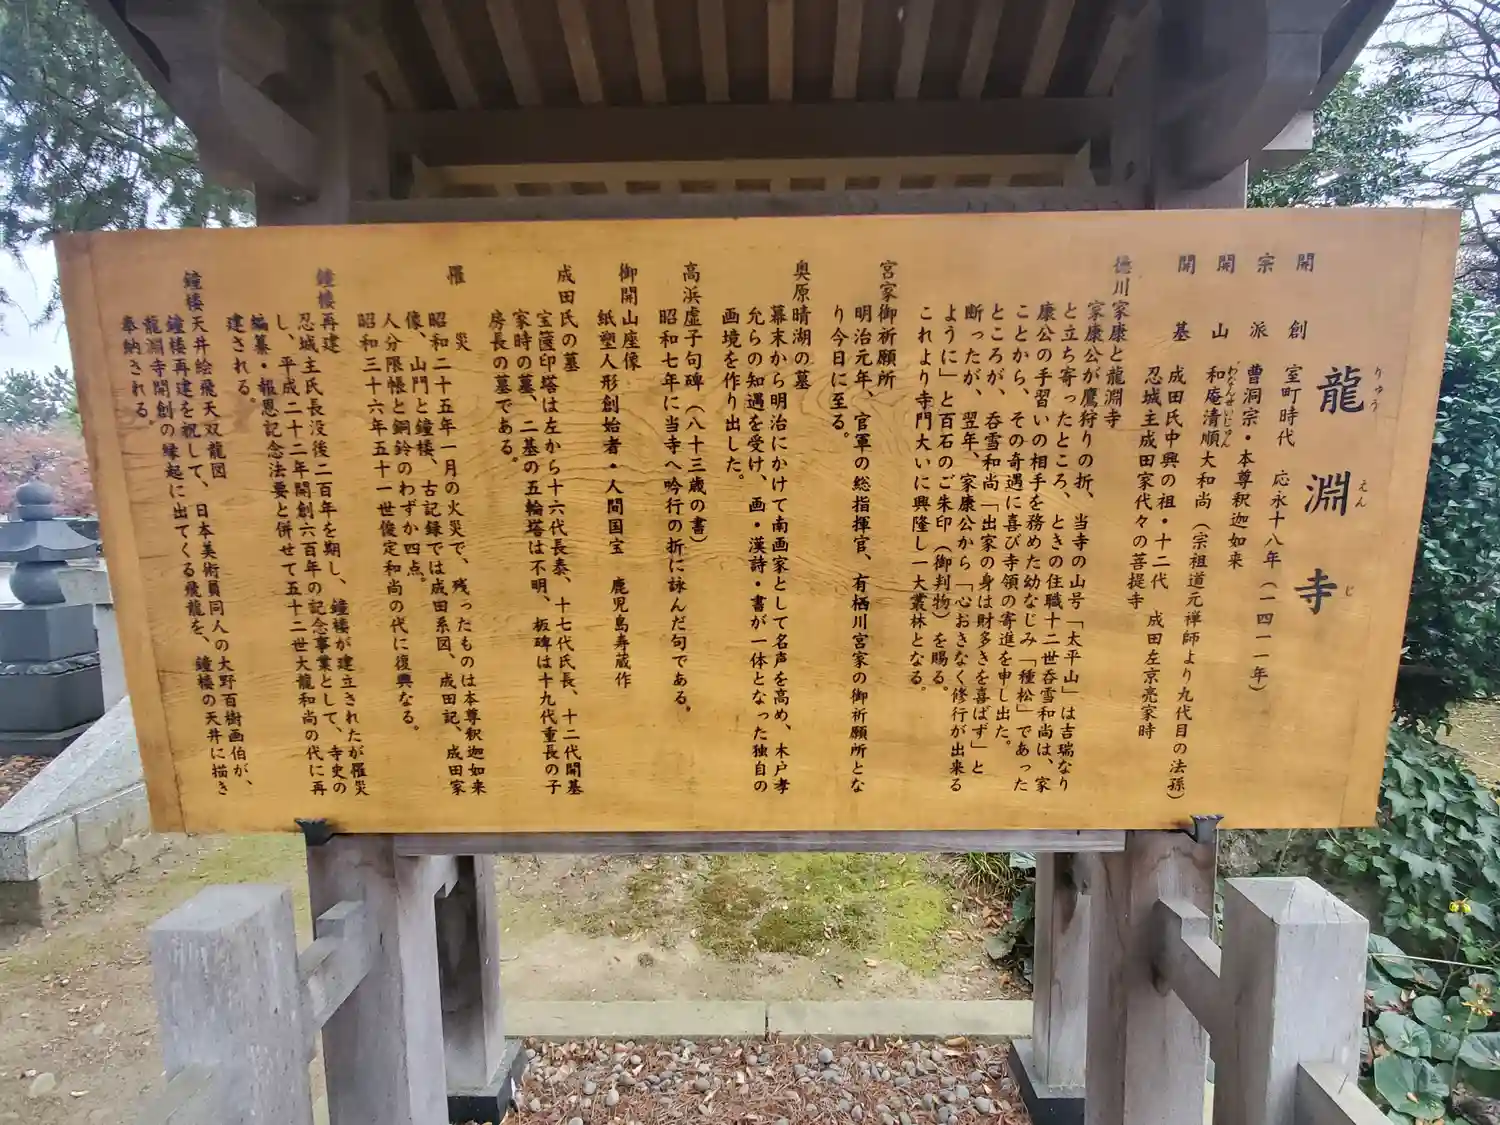 龍淵寺
りゅうえんじ
開創　室町時代　応永十八年（一四一一年）
宗派　曹洞宗・本尊釈迦如来
開山　和庵清順大和尚（宗祖道元禅師より九代目の法孫）
わなんせいじゅん
開基　成田氏中興の祖・十二代　成田左京亮家時
忍城主成田家代々の菩提寺
徳川家康と龍淵寺
家康公が鷹狩りの折、当寺の山号「太平山」は吉瑞なり
と立ち寄ったところ、ときの住職十二世呑雪和尚は、家
康公の手習いの相手を務めた幼なじみ「種松」であった
ことから、その奇遇に喜び寺領の寄進を申し出た。
ところが、呑雪和尚「出家の身は財多きを喜ばず」と
断ったが、翌年、家康公から「心おきなく修行が出来る
ように」と百石のご朱印（御判物）を賜る。
これより寺門大いに興隆し一大叢林となる。
宮家御祈願所
明治元年、官軍の総指揮官、有栖川宮家の御祈願所とな
り今日に至る。
奥原晴湖の墓
幕末から明治にかけて南画家として名声を高め、木戸孝
允らの知遇を受け、画・漢詩・書が一体となった独自の
画境を作り出した。
高浜虚子句碑（八十三歳の書）
昭和七年に当寺へ吟行の折に詠んだ句である。
御開山座像
紙塑人形創始者・人間国宝　鹿児島寿蔵作
成田氏の墓
宝篋印塔は左から十六代長泰、十七代氏長、十二代開基
家時の墓、二基の五輪塔は不明、板碑は十九代重長の子
房長の墓である。
罹災
昭和二十五年一月の火災で、残ったものは本尊釈迦如来
像、山門と鐘楼、古記録では成田系図、成田記、成田家
人分限帳と銅鈴のわずか四点。
昭和三十六年五十一世俊定和尚の代に復興なる。
鐘楼再建
忍城主氏長没後二百年を期し、鐘楼が建立されたが罹災
し、平成二十二年開創六百年の記念事業として、寺史の
編纂・報恩記念法要と併せて五十二世大龍和尚の代に再
建される。
鐘楼天井絵飛天双龍図
鐘楼再建を祝して、日本美術員同人の大野百樹画伯が、
龍淵寺開創の縁起に出てくる飛龍を、鐘楼の天井に描き
奉納される。